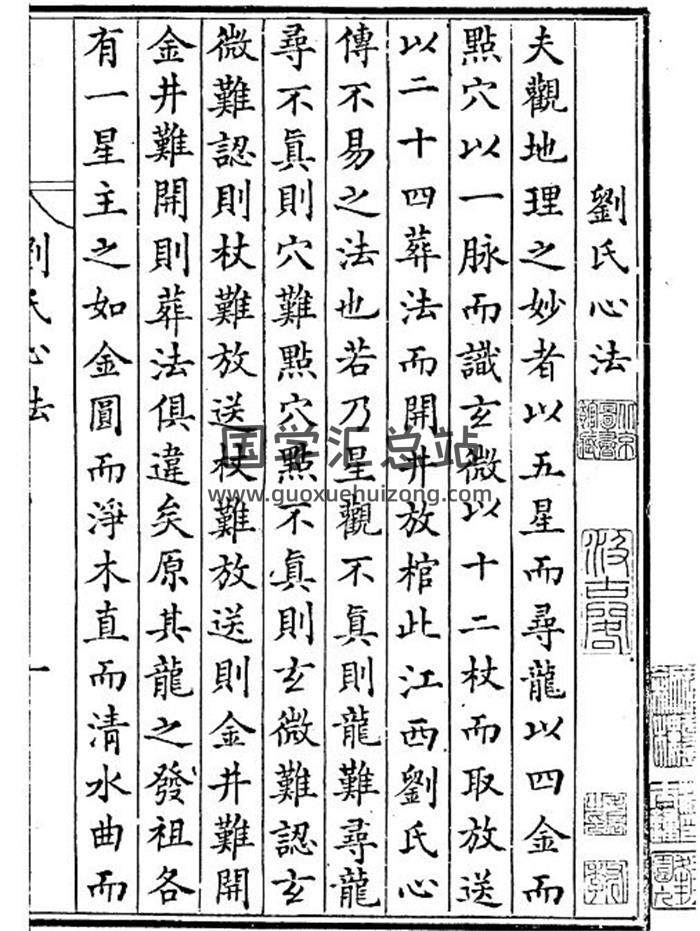 劉氏心法
夫觀地理之妙者以五星而尋龍以四金而
點穴以一脉而識玄微以十二杖而取放送
以二十四葬法而開井放棺此江西劉氏心
傳不易之法也若乃星觀不眞則龍難尋龍
尋不眞則穴難點穴點不眞則玄微難認玄
微難認則杖難放送杖難放送則金井難開
金井難開則葬法俱違矣原其龍之發祖各
有一星主之如金圓而淨木直而清水曲而
劉氏心法 一
国学汇总站
www.guoxuehuizong.com
汲古閣